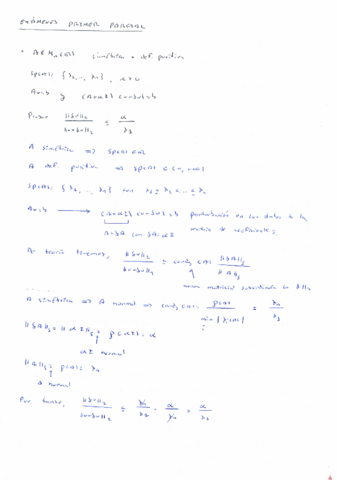 EXÁMENES PRIMER PARCIAL
• A ∈ Mn(R) simétrica + def. positiva
Sp(A) = {λ1, ..., λn}, α > 0
Au = b y (A+αI)(u+δu) = b
Probar ||δu||2 / ||u+δu||2 ≤ α / λ1
A simétrica ⇒ Sp(A) ⊂ R
A def. positiva ⇒ Sp(A) ⊂ (0, +∞)
Sp(A) = {λ1, ..., λn} con λ1 ≤ λ2 ≤ ... ≤ λn
Au = b → (A+αI)(u+δu) = b perturbación en los datos de la
matriz de coeficientes
δA con δA = αI
De teoría tenemos, ||δu||2 / ||u+δu||2 ≤ cond2(A) ||δA||2 / ||A||2
norma matricial subordinada
A simétrica ⇒ A normal ⇒ cond2(A) = ρ(A) / min{|λi(A)|} = λn / λ1
||δA||2 = ||αI||2 = ρ(αI) = α
αI normal
||A||2 = ρ(A) = λn
A normal
Por tanto, ||δu||2 / ||u+δu||2 ≤ λn / λ1 · α / λn = α / λ1